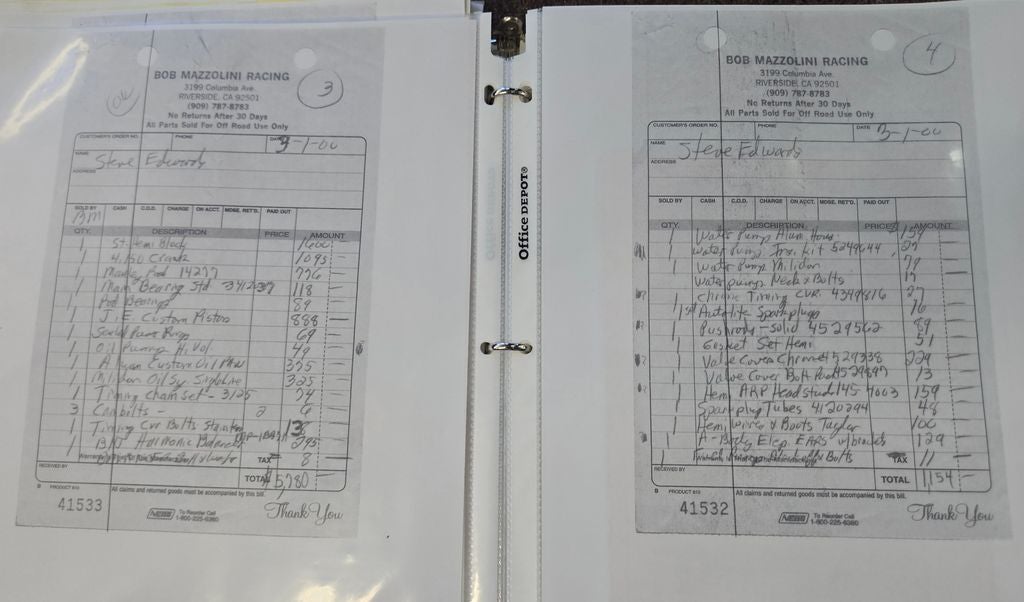 OK
3
BOB MAZZOLINI RACING
3199 Columbia Ave.
RIVERSIDE, CA 92501
(909) 787-8783
No Returns After 30 Days
All Parts Sold For Off Road Use Only
CUSTOMER'S ORDER NO. PHONE DATE 3-1-00
NAME Steve Edwards
ADDRESS
SOLD BY CASH C.O.D. CHARGE ON ACCT. MDSE. RET'D. PAID OUT
BM
QTY. DESCRIPTION PRICE AMOUNT
1 St. Hemi Block 1600 -
1 4.150 Crank 1095 -
1 Manley Rod 14277 776 -
1 Main Bearing Std 118 -
1 Rod Bearings 89 -
1 J.E. Custom Pistons 888 -
1 Rings 69 -
1 Oil Pump Hi Vol 49 -
1 Custom Oil Pan 375 -
1 Milodon Oil Sy. Single line 325 -
1 Timing chain set - 3125 74 -
3 Cam bolts - 2 6 -
1 Timing Cvr Bolts Stainless 13 -
1 Harmonic Balancer 295 -
TAX 8 -
RECEIVED BY TOTAL 5780 -
B PRODUCT 610 All claims and returned goods must be accompanied by this bill.
41533 NEBS To Reorder Call 1-800-225-6380 Thank You
Office DEPOT®
4
BOB MAZZOLINI RACING
3199 Columbia Ave.
RIVERSIDE, CA 92501
(909) 787-8783
No Returns After 30 Days
All Parts Sold For Off Road Use Only
CUSTOMER'S ORDER NO. PHONE DATE 3-1-00
NAME Steve Edwards
ADDRESS
SOLD BY CASH C.O.D. CHARGE ON ACCT. MDSE. RET'D. PAID OUT
QTY. DESCRIPTION PRICE AMOUNT
1 Water Pump Alum Hous 159 -
1 Water Pump Kit 5249644 27 -
1 Water Pump Milodon 79 -
Water pump Neck & Bolts 17 -
Chrome Timing CVR. 4349816 27 -
1 Autolite Sparkplugs 16 -
1 Pushrods - solid 4529562 89 -
1 Gasket Set Hemi 51 -
1 Valve Covers Chrome 4529338 229 -
1 Valve Cover Bolt 4529897 13 -
1 Hemi ARP Head stud 145-4003 159 -
1 Spark plug Tubes 4120294 48 -
1 Hemi wires & Boots Taylor 100 -
1 A-Body Elep. EARS w/brackets 129 -
1 Bolts TAX 11 -
RECEIVED BY TOTAL 1154 -
B PRODUCT 610 All claims and returned goods must be accompanied by this bill.
41532 NEBS To Reorder Call 1-800-225-6380 Thank You